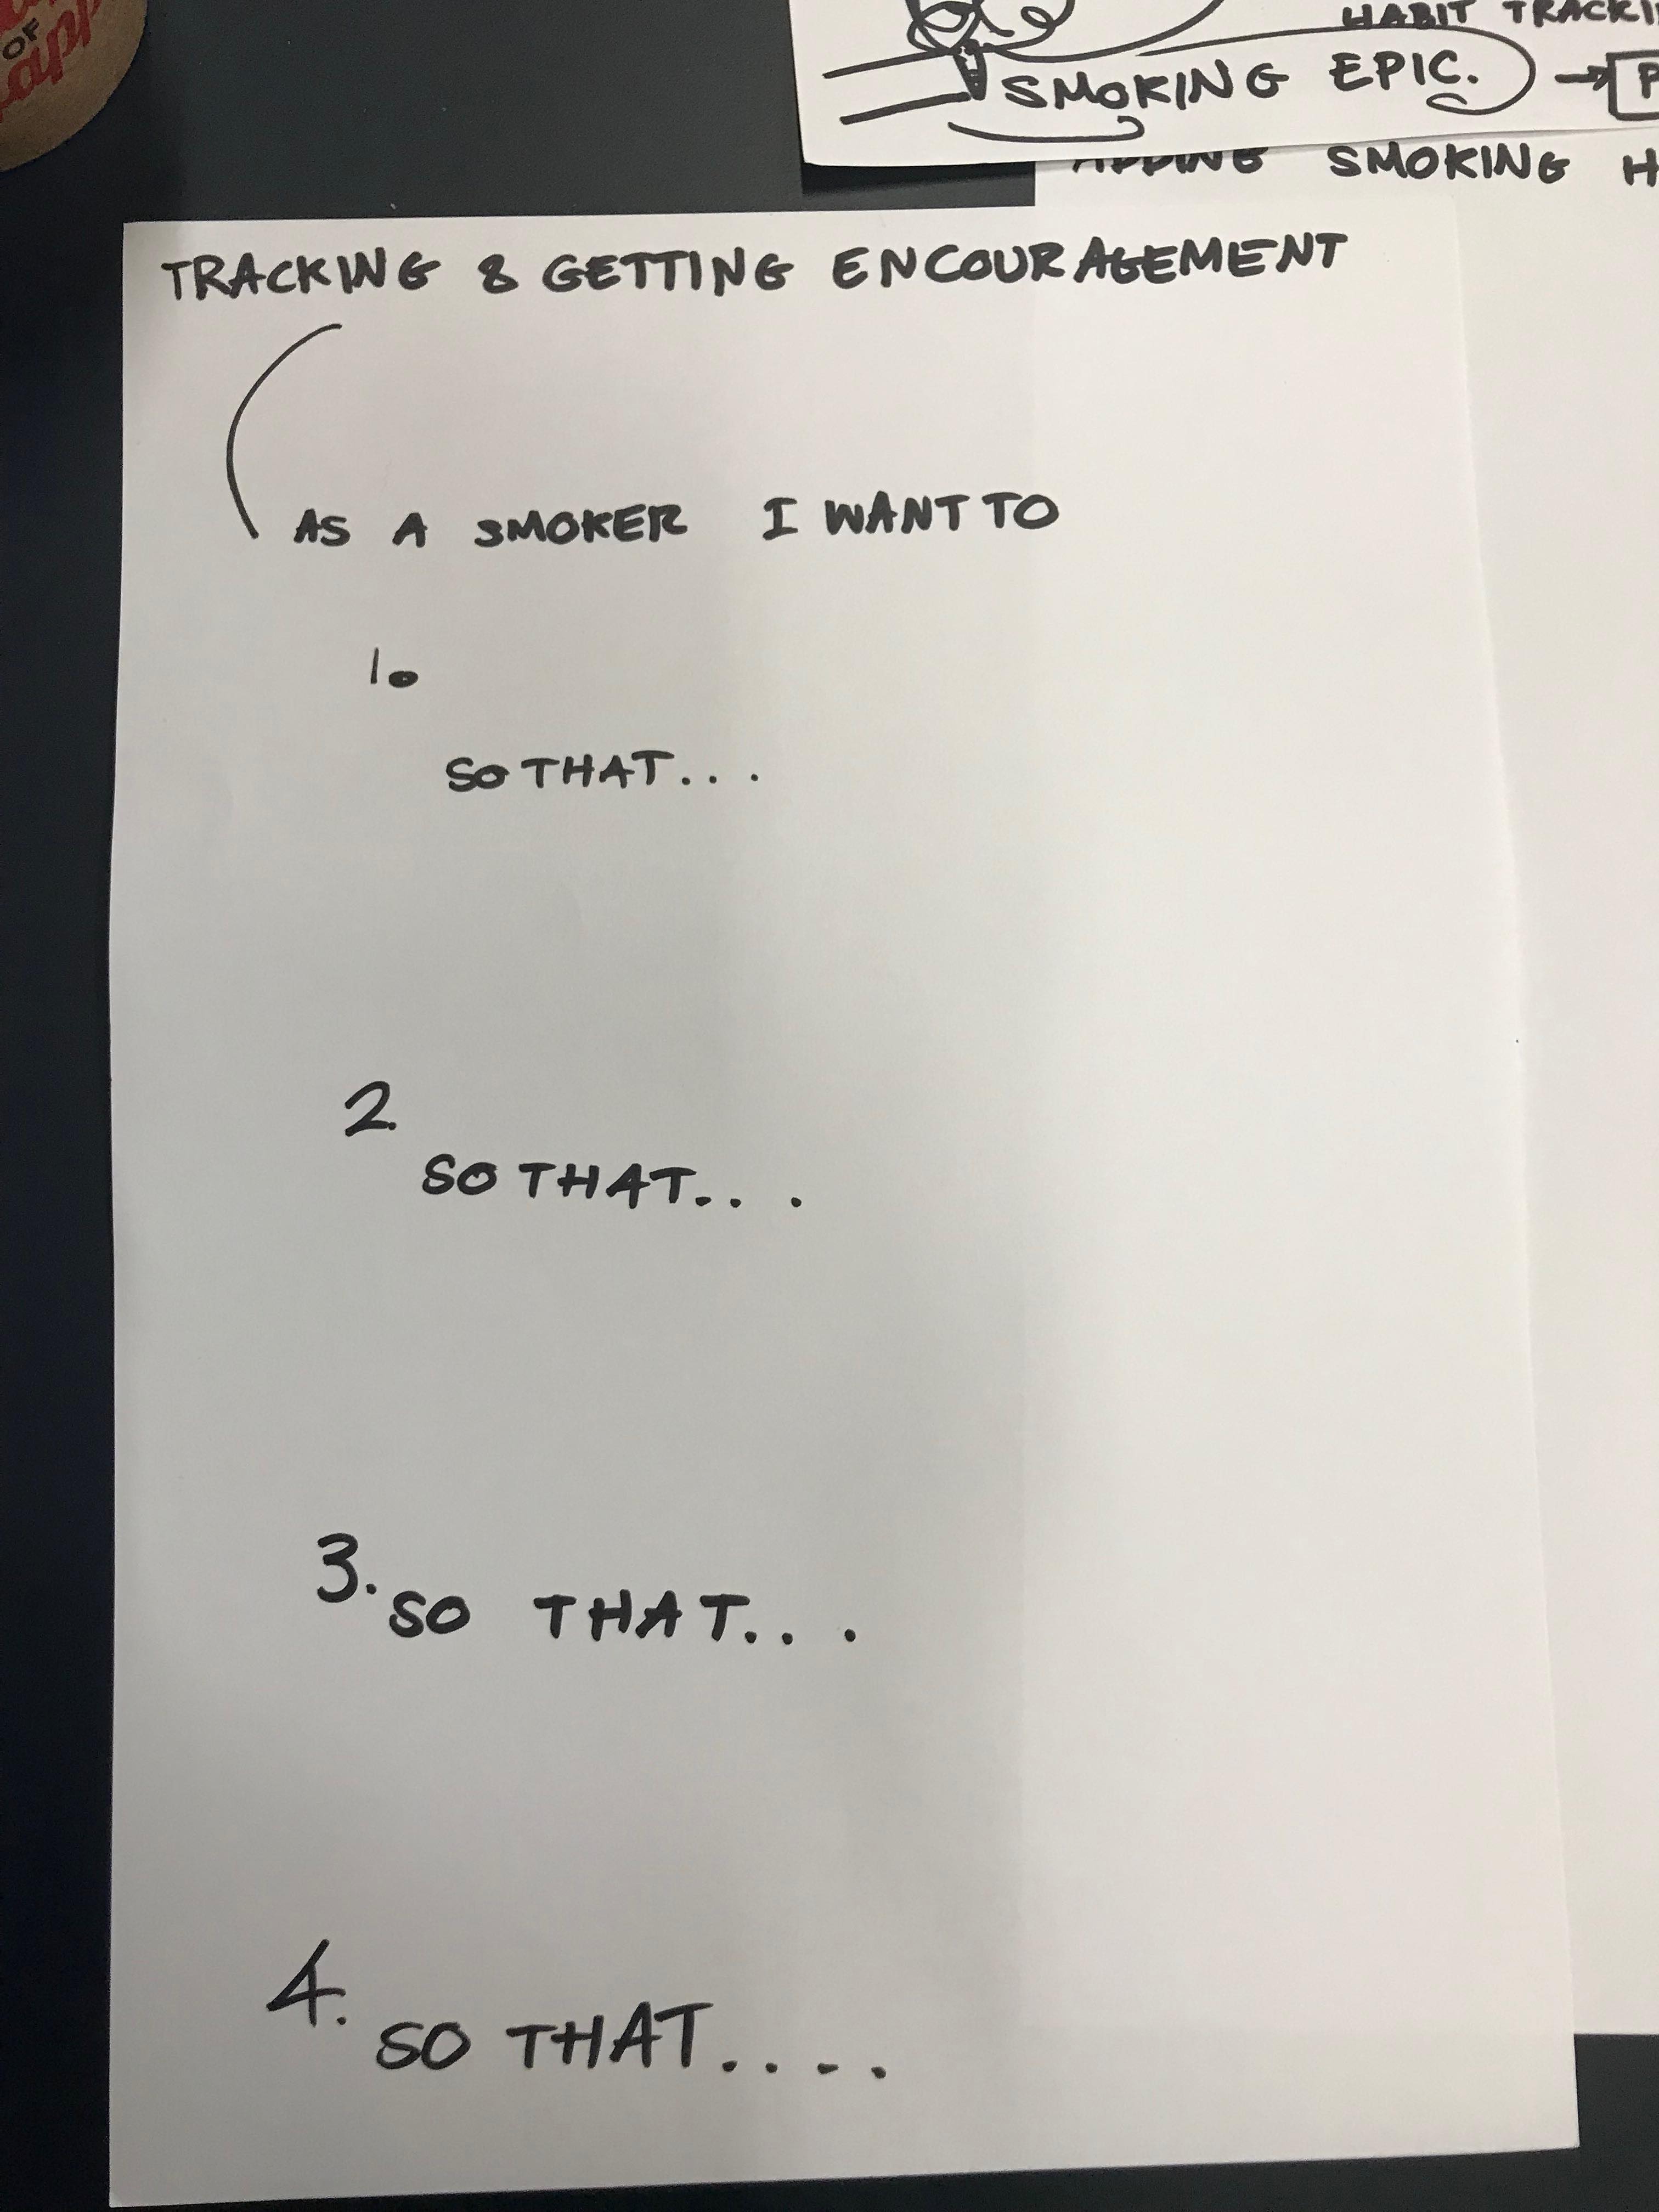 OF
HABIT
SMOKING EPIC.
ADDING SMOKING
TRACKING & GETTING ENCOURAGEMENT
AS A SMOKER I WANT TO
1.
SO THAT...
2.
SO THAT...
3.
SO THAT...
4.
SO THAT....